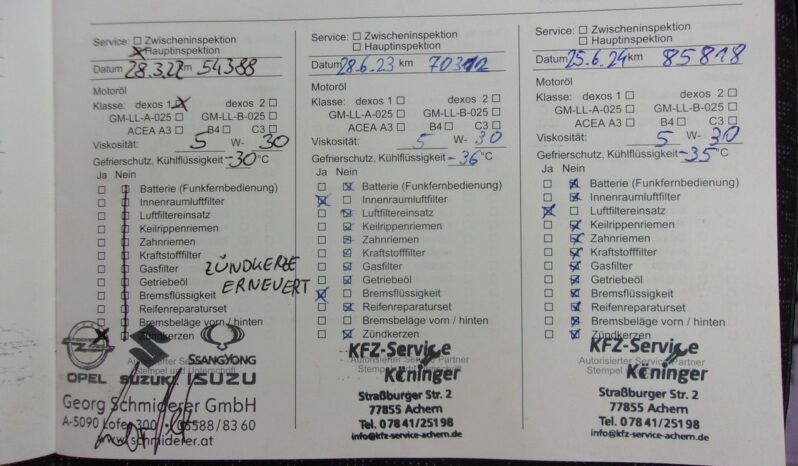 Service: Zwischeninspektion
Hauptinspektion
Datum 28.3.22 km 54388
Motoröl
Klasse: dexos 1 dexos 2
GM-LL-A-025 GM-LL-B-025
ACEA A3 B4 C3
Viskosität: 5 W- 30
Gefrierschutz, Kühlflüssigkeit -30 °C
Ja Nein
Batterie (Funkfernbedienung)
Innenraumluftfilter
Luftfiltereinsatz
Keilrippenriemen
Zahnriemen
Kraftstofffilter
Gasfilter
Getriebeöl
Bremsflüssigkeit
Reifenreparaturset
Bremsbeläge vorn / hinten
Zündkerzen
ZÜNDKERZE
ERNEUERT
Autorisierter Service Partner
Stempel und Unterschrift
OPEL SUZUKI SSANGYONG ISUZU
Georg Schmiderer GmbH
A-5090 Lofer 300 06588/83 60
www.schmiderer.at
Service: Zwischeninspektion
Hauptinspektion
Datum 28.6.23 km 70312
Motoröl
Klasse: dexos 1 dexos 2
GM-LL-A-025 GM-LL-B-025
ACEA A3 B4 C3
Viskosität: 5 W- 30
Gefrierschutz, Kühlflüssigkeit -36 °C
Ja Nein
Batterie (Funkfernbedienung)
Innenraumluftfilter
Luftfiltereinsatz
Keilrippenriemen
Zahnriemen
Kraftstofffilter
Gasfilter
Getriebeöl
Bremsflüssigkeit
Reifenreparaturset
Bremsbeläge vorn / hinten
Zündkerzen
Autorisierter Service Partner
Stempel
KFZ-Service
Köninger
Straßburger Str. 2
77855 Achern
Tel. 07841/25198
info@kfz-service-achern.de
Service: Zwischeninspektion
Hauptinspektion
Datum 25.6.24 km 85818
Motoröl
Klasse: dexos 1 dexos 2
GM-LL-A-025 GM-LL-B-025
ACEA A3 B4 C3
Viskosität: 5 W- 30
Gefrierschutz, Kühlflüssigkeit -35 °C
Ja Nein
Batterie (Funkfernbedienung)
Innenraumluftfilter
Luftfiltereinsatz
Keilrippenriemen
Zahnriemen
Kraftstofffilter
Gasfilter
Getriebeöl
Bremsflüssigkeit
Reifenreparaturset
Bremsbeläge vorn / hinten
Zündkerzen
Autorisierter Service Partner
Stempel
KFZ-Service
Köninger
Straßburger Str. 2
77855 Achern
Tel. 07841/25198
info@kfz-service-achern.de